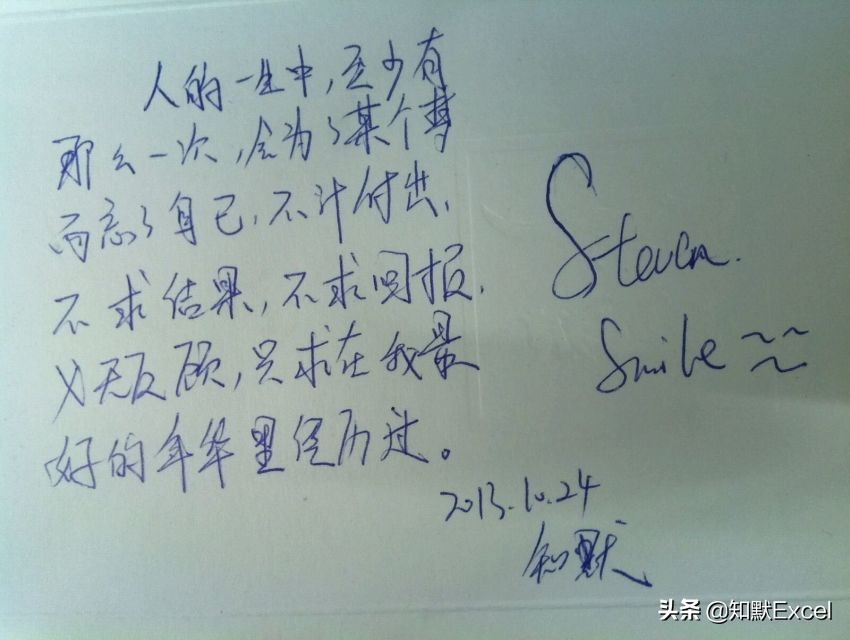 人的一生中,至少有
那么一次,会为了某个梦
而忘了自己,不计付出,
不求结果,不求回报,
义无反顾,只求在我最
好的年华里经历过。
Steven.
Smile ~~
~
2013.10.24
知默
头条 @知默Excel